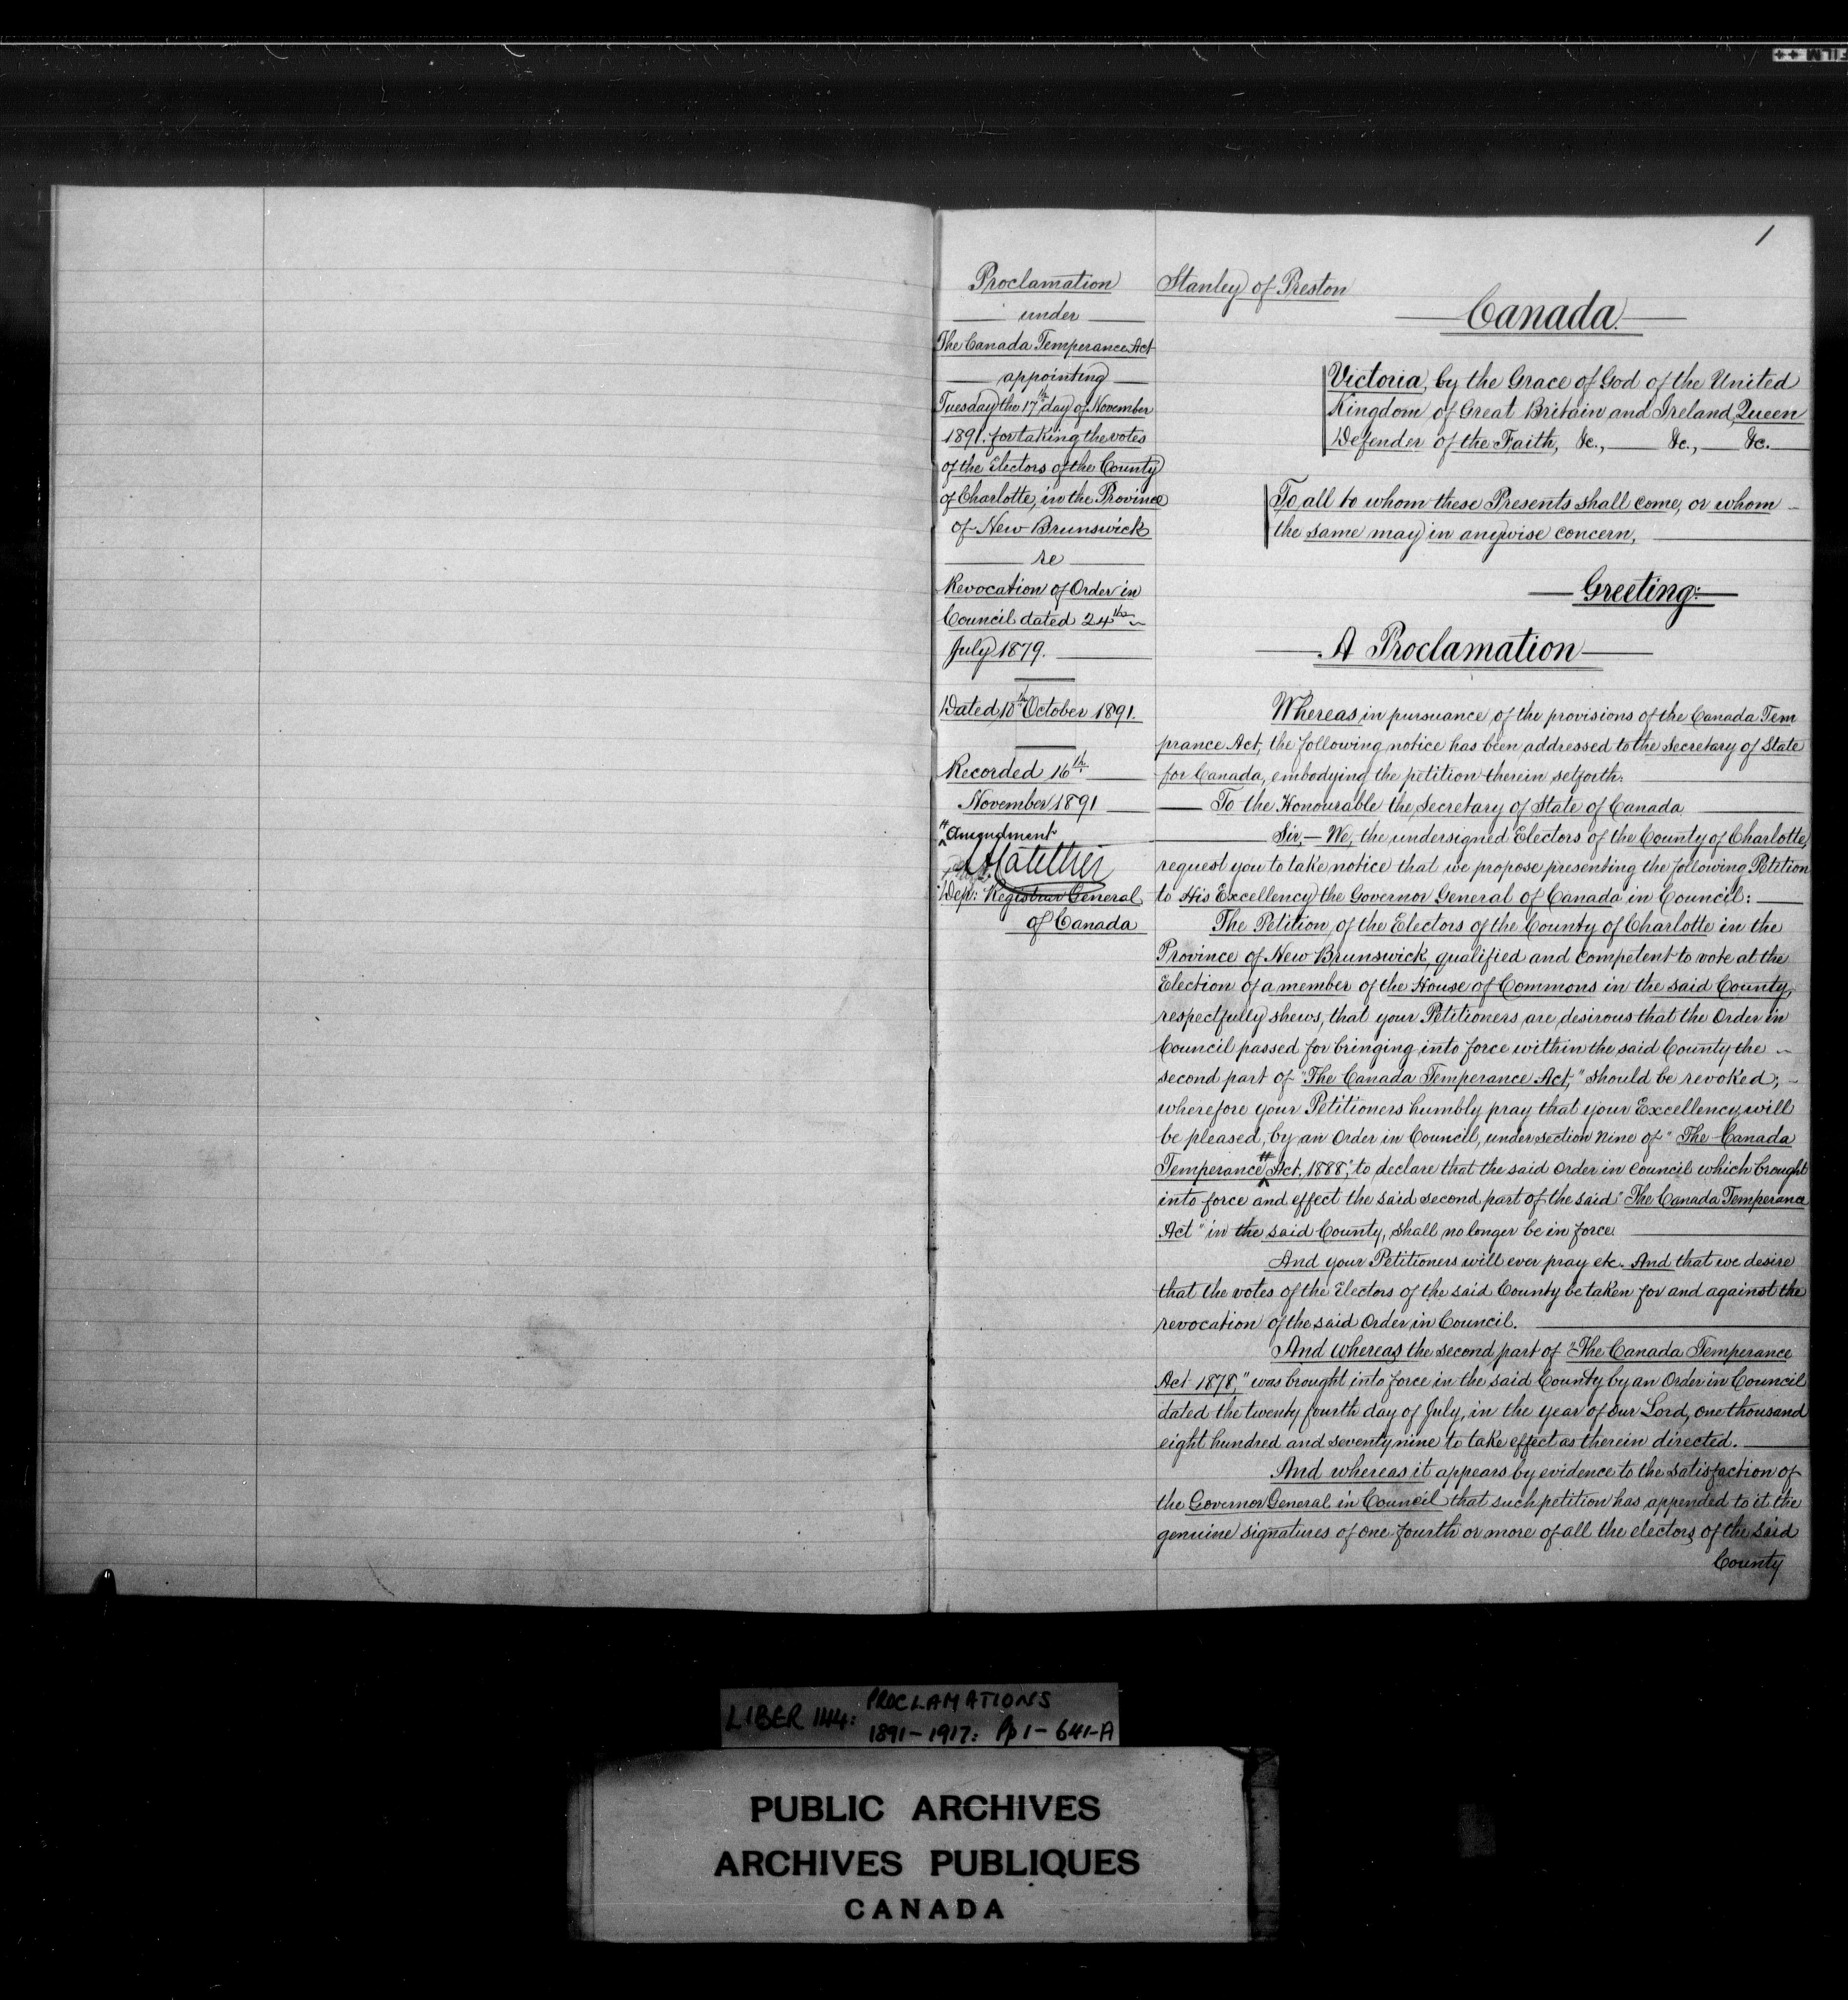 1
Proclamation
under
The Canada Temperance Act
appointing
Tuesday the 17th day of November
1891. for taking the votes
of the Electors of the County
of Charlotte, in the Province
of New Brunswick
re
Revocation of Order in
Council dated 24th
July 1879.
Dated 10th October 1891.
Recorded 16th
November 1891
# Amendment
Dep: Registrar General
of Canada
Stanley of Preston
Canada.
Victoria, by the Grace of God of the United
Kingdom of Great Britain and Ireland, Queen
Defender of the Faith, &c., &c., &c.
To all to whom these Presents shall come, or whom
the same may in anywise concern,
Greeting:
A Proclamation
Whereas in pursuance of the provisions of the Canada Tem
prance Act, the following notice has been addressed to the Secretary of State
for Canada, embodying the petition therein setforth:
To the Honourable the Secretary of State of Canada
Sir,— We, the undersigned Electors of the County of Charlotte,
request you to take notice that we propose presenting the following Petition
to His Excellency the Governor General of Canada in Council:
The Petition of the Electors of the County of Charlotte in the
Province of New Brunswick, qualified and competent to vote at the
Election of a member of the House of Commons in the said County,
respectfully shews, that your Petitioners are desirous that the Order in
Council passed for bringing into force within the said County the
second part of "The Canada Temperance Act," should be revoked;
wherefore your Petitioners humbly pray that your Excellency will
be pleased, by an Order in Council, under section nine of "The Canada
Temperance # Act. 1888," to declare that the said Order in Council which brought
into force and effect the said second part of the said "The Canada Temperance
Act" in the said County, shall no longer be in force.
And your Petitioners will ever pray etc. And that we desire
that the votes of the Electors of the said County be taken for and against the
revocation of the said Order in Council.
And whereas the second part of "The Canada Temperance
Act 1878," was brought into force in the said County by an Order in Council
dated the twenty fourth day of July, in the year of Our Lord, one thousand
eight hundred and seventy nine to take effect as therein directed.
And whereas it appears by evidence to the satisfaction of
the Governor General in Council that such petition has appended to it the
genuine signatures of one fourth or more of all the electors of the said
County
LIBER 144: PROCLAMATIONS
1891-1917: Pp 1-641-A
PUBLIC ARCHIVES
ARCHIVES PUBLIQUES
CANADA